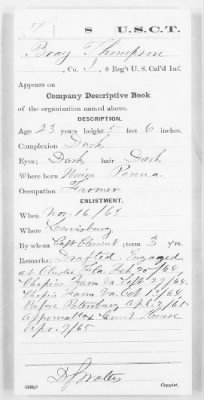 8 U.S.C.T.
Bray Thompson
, Co. , 8 Reg't U. S. Col'd Inf.
Appears on
Company Descriptive Book
of the organization named above.
DESCRIPTION.
Age 23 years; height 5 feet 6 inches.
Complexion Dark
Eyes; Dark, hair Dark
Where born Penna
Occupation Farmer
ENLISTMENT.
When Nov. 16/63
Where Lewisburg
By whom Capt ; term 3 yrs.
Remarks: Drafted. Engaged
at Fla Feb. 20/64,
Chapins Farm Va. Sept. 29/64,
Va. Oct 13/64,
Before Petersburg Apr. 2/65
Appomattox Court House
Apr. 9/65
Copyist.